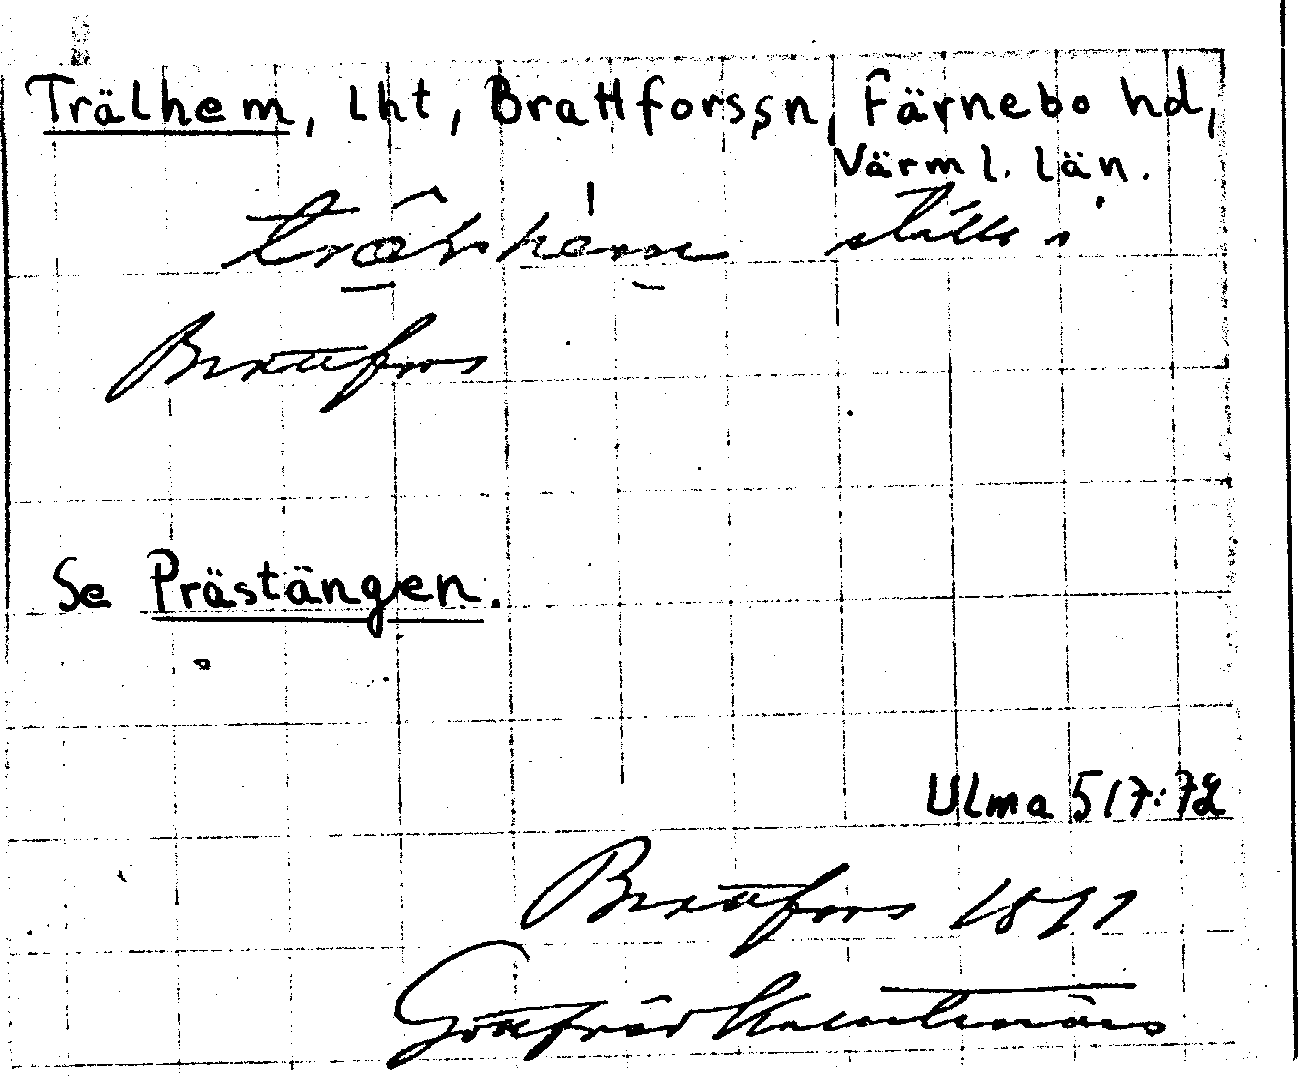 Trälhem, lht, Brattfors sn, Färnebo hd,
Värml. län.
ställe i
Brattfors
Se Prästängen.
Ulma 517:72
Brattfors
Gottfrid Kallstenius